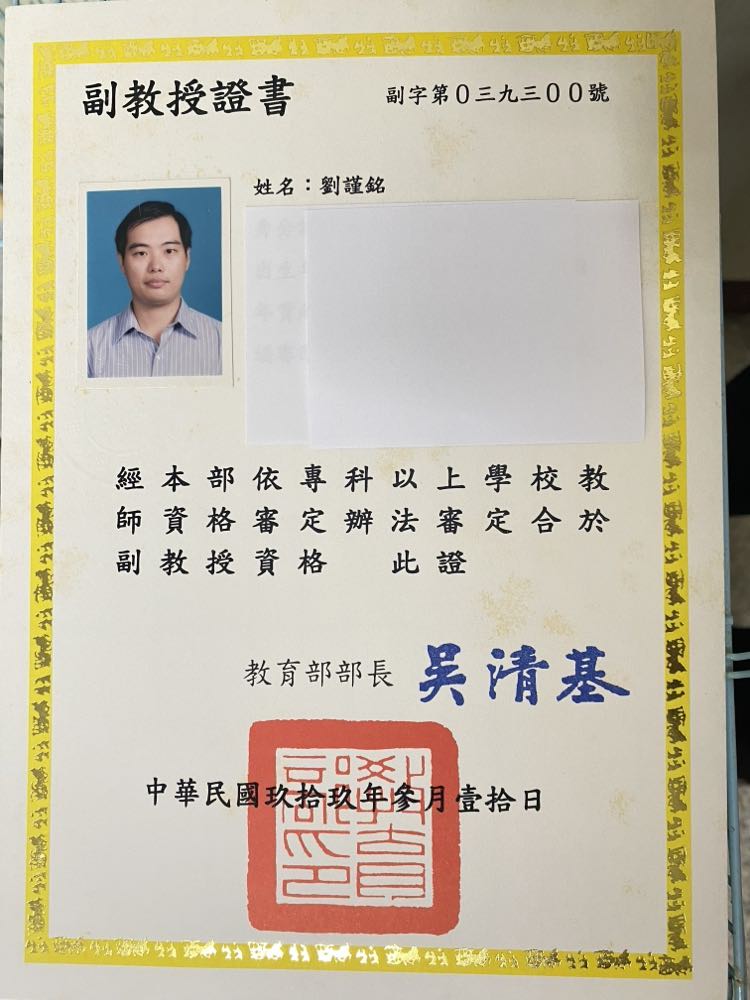 副教授證書
副字第0三九三00號
姓名：劉謹銘
經本部依專科以上學校教
師資格審定辦法審定合於
副教授資格 此證
教育部部長 吳清基
中華民國玖拾玖年參月壹拾日
教育部印